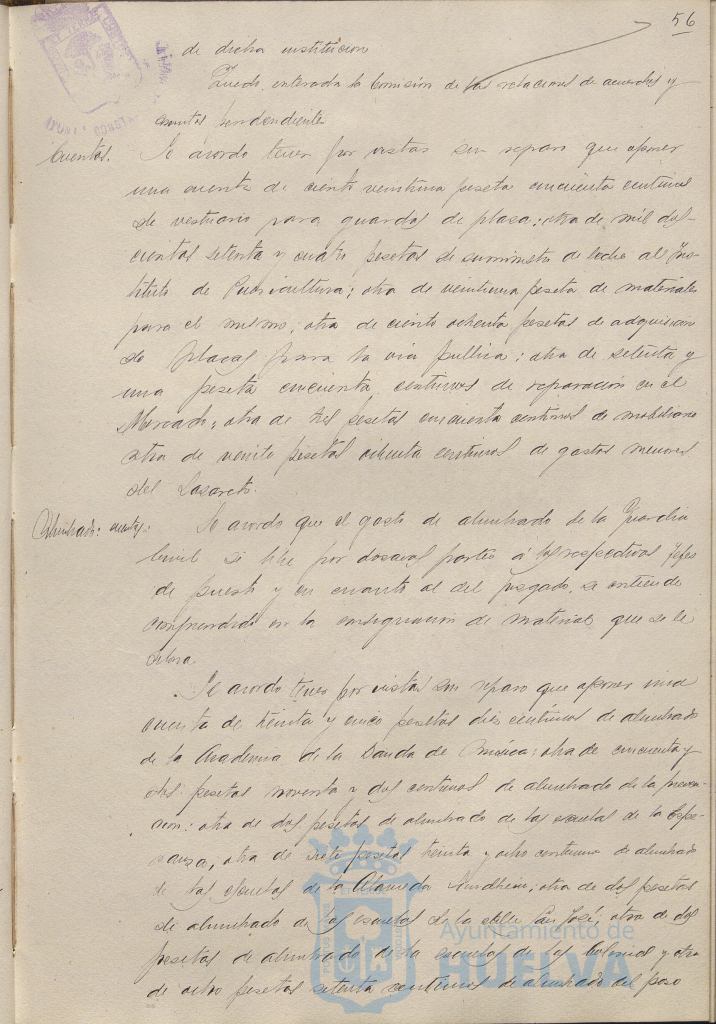 56
de dicha institucion
Quedó enterada la Comisión de las relaciones de acuerdos y
asuntos pendientes
Cuentas. Se acordo tener por vistas sin reparo que oponer
una cuenta de ciento veintiuna peseta cincuenta centimos
de vestuario para guardas de plaza; otra de mil dos-
cientas setenta y cuatro pesetas de suministro de leche al Ins-
tituto de Puericultura; otra de veintiuna peseta de materiales
para el mismo; otra de ciento ochenta pesetas de adquisicion
de placas para la via publica; otra de setenta y
una peseta cincuenta centimos de reparación en el
Mercado; otra de tres pesetas cincuenta centimos de mobiliario
otra de veinte pesetas ochenta centimos de gastos menores
del Lazareto.
Alumbrado: cuentas. Se acordo que el gasto de alumbrado de la Guardia
Civil se libre por dozavas partes á los respectivos Jefes
de puesto y en cuanto al del juzgado, se entiende
comprendido en la consignacion de material que se le
libra.
Se acordo tener por vistas sin reparo que oponer una
cuenta de treinta y cinco pesetas diez centimos de alumbrado
de la Academia de la Banda de Música; otra de cincuenta y
dos pesetas noventa y dos centimos de alumbrado de la preven-
cion; otra de dos pesetas de alumbrado de las escuelas de la Espe-
ranza, otra de siete pesetas treinta y ocho centimos de alumbrado
de las escuelas de la Alameda Sundheim; otra de dos pesetas
de alumbrado de las escuelas de la calle San José, otra de dos
pesetas de alumbrado de la escuelas de las Colonias y otra
de ocho pesetas setenta centimos de alumbrado del paso
Ayuntamiento de
HUELVA